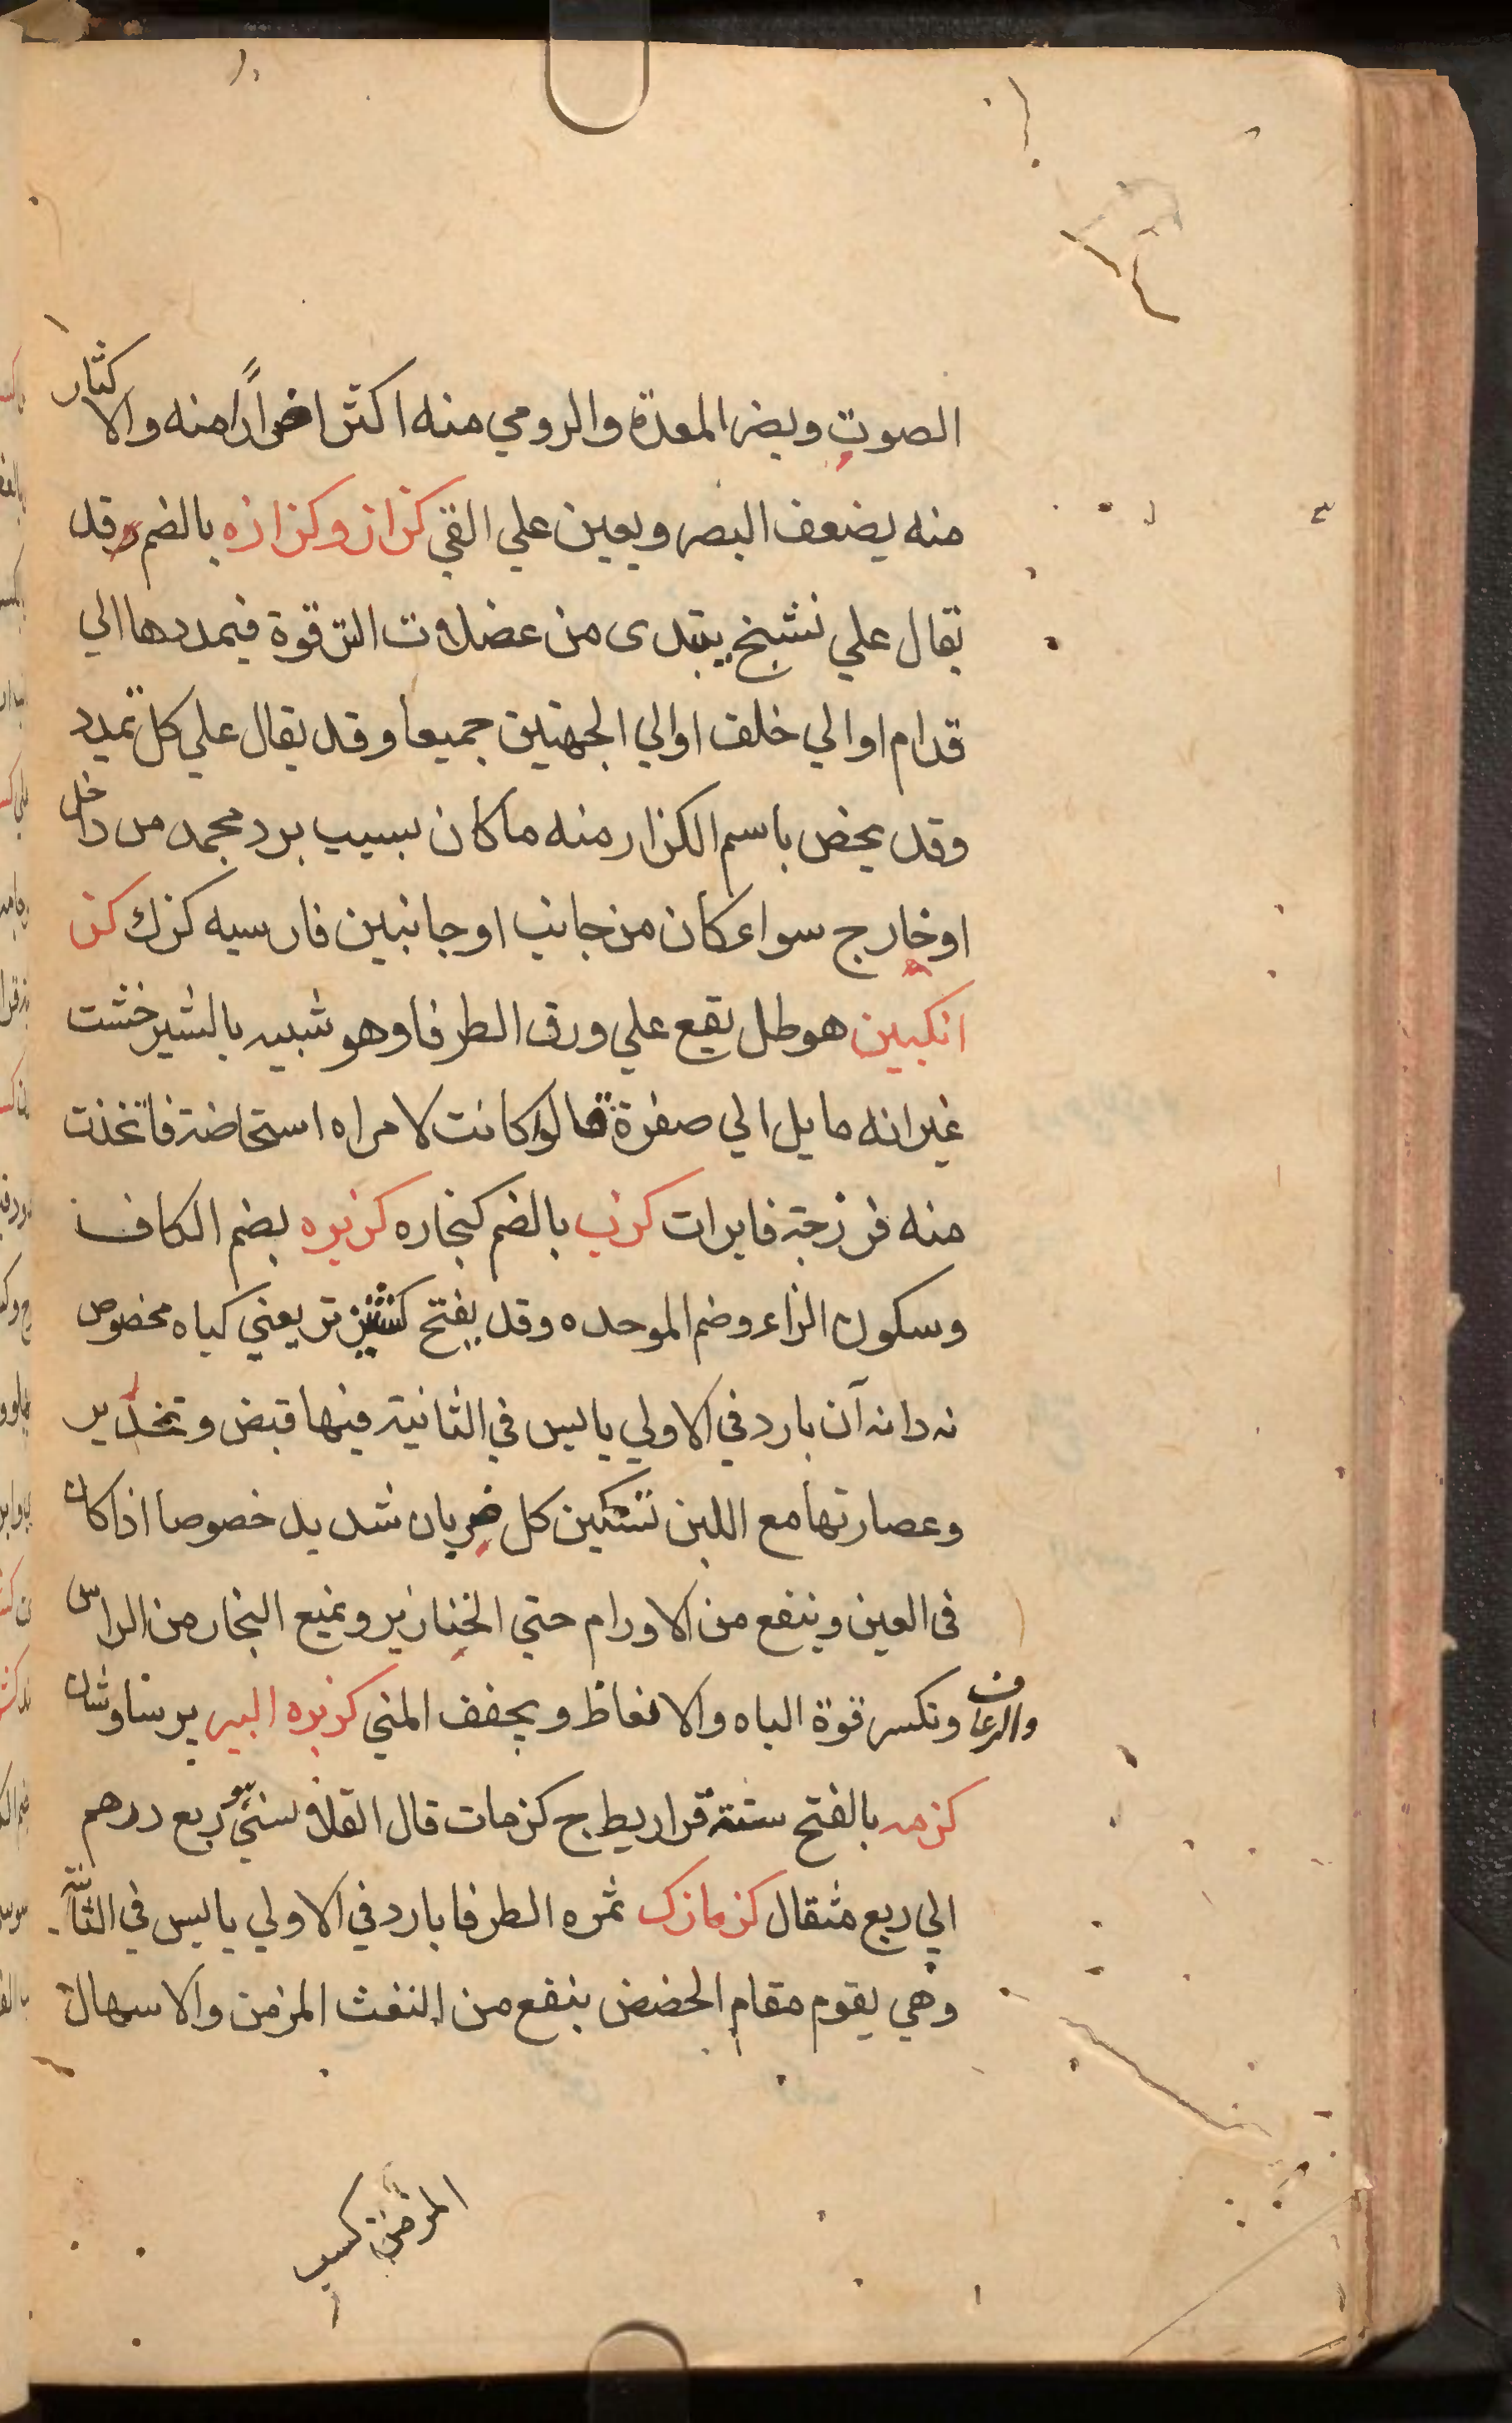 الصوت ويضر المعدة والرومي منه اكثر اضرارًا منه والاكثار
منه يضعف البصر ويعين علي القي كزاز وكزازه بالضم وقد
يقال علي تشنج يبتدى من عضلات الترقوة فيمددها الي
قدام او الي خلف او الي الجهتين جميعا وقد يقال علي كل تمدد
وقد يخص باسم الكزاز منه ما كان بسبب برد مجمد من داخل
او خارج سواء كان من جانب او جانبين فارسيه كزك كز
انكبين هو طل يقع علي ورق الطرفا وهو شبيه بالشيرخشت
غير انه مايل الي صفرة قالوا كانت لامراه استحاضة فاتخذت
منه فرزجة فابرات كزب بالضم كنجاره كزبره بضم الكاف
وسكون الزاء وضم الموحده وقد يفتح كشنيز تر يعني كياه مخصوص
نه دانه آن بارد في الاولي يابس في الثانية فيها قبض وتخدير
وعصارتها مع اللبن تسكين كل ضربان شديد خصوصا اذا كان
فى العين وينفع من الاورام حتي الخنازير ويمنع البخار من الراس
والرعاف وتكسر قوة الباه والانعاظ ويجفف المني كزبره البير برسياوشان
كزمه بالفتح ستة قراريط ج كزمات قال القلانسي هو ربع درهم
الي ربع مثقال كزمازك ثمره الطرفا بارد في الاولي يابس في الثانية
وهي يقوم مقام الحضض ينفع من النفث المزمن والاسهال
المزمن كسب